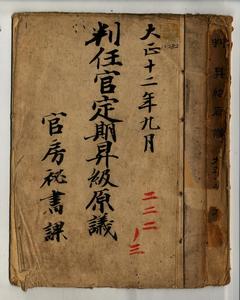 大正十二年九月
判任官定期昇級原議
官房秘書課
二二二ノ三